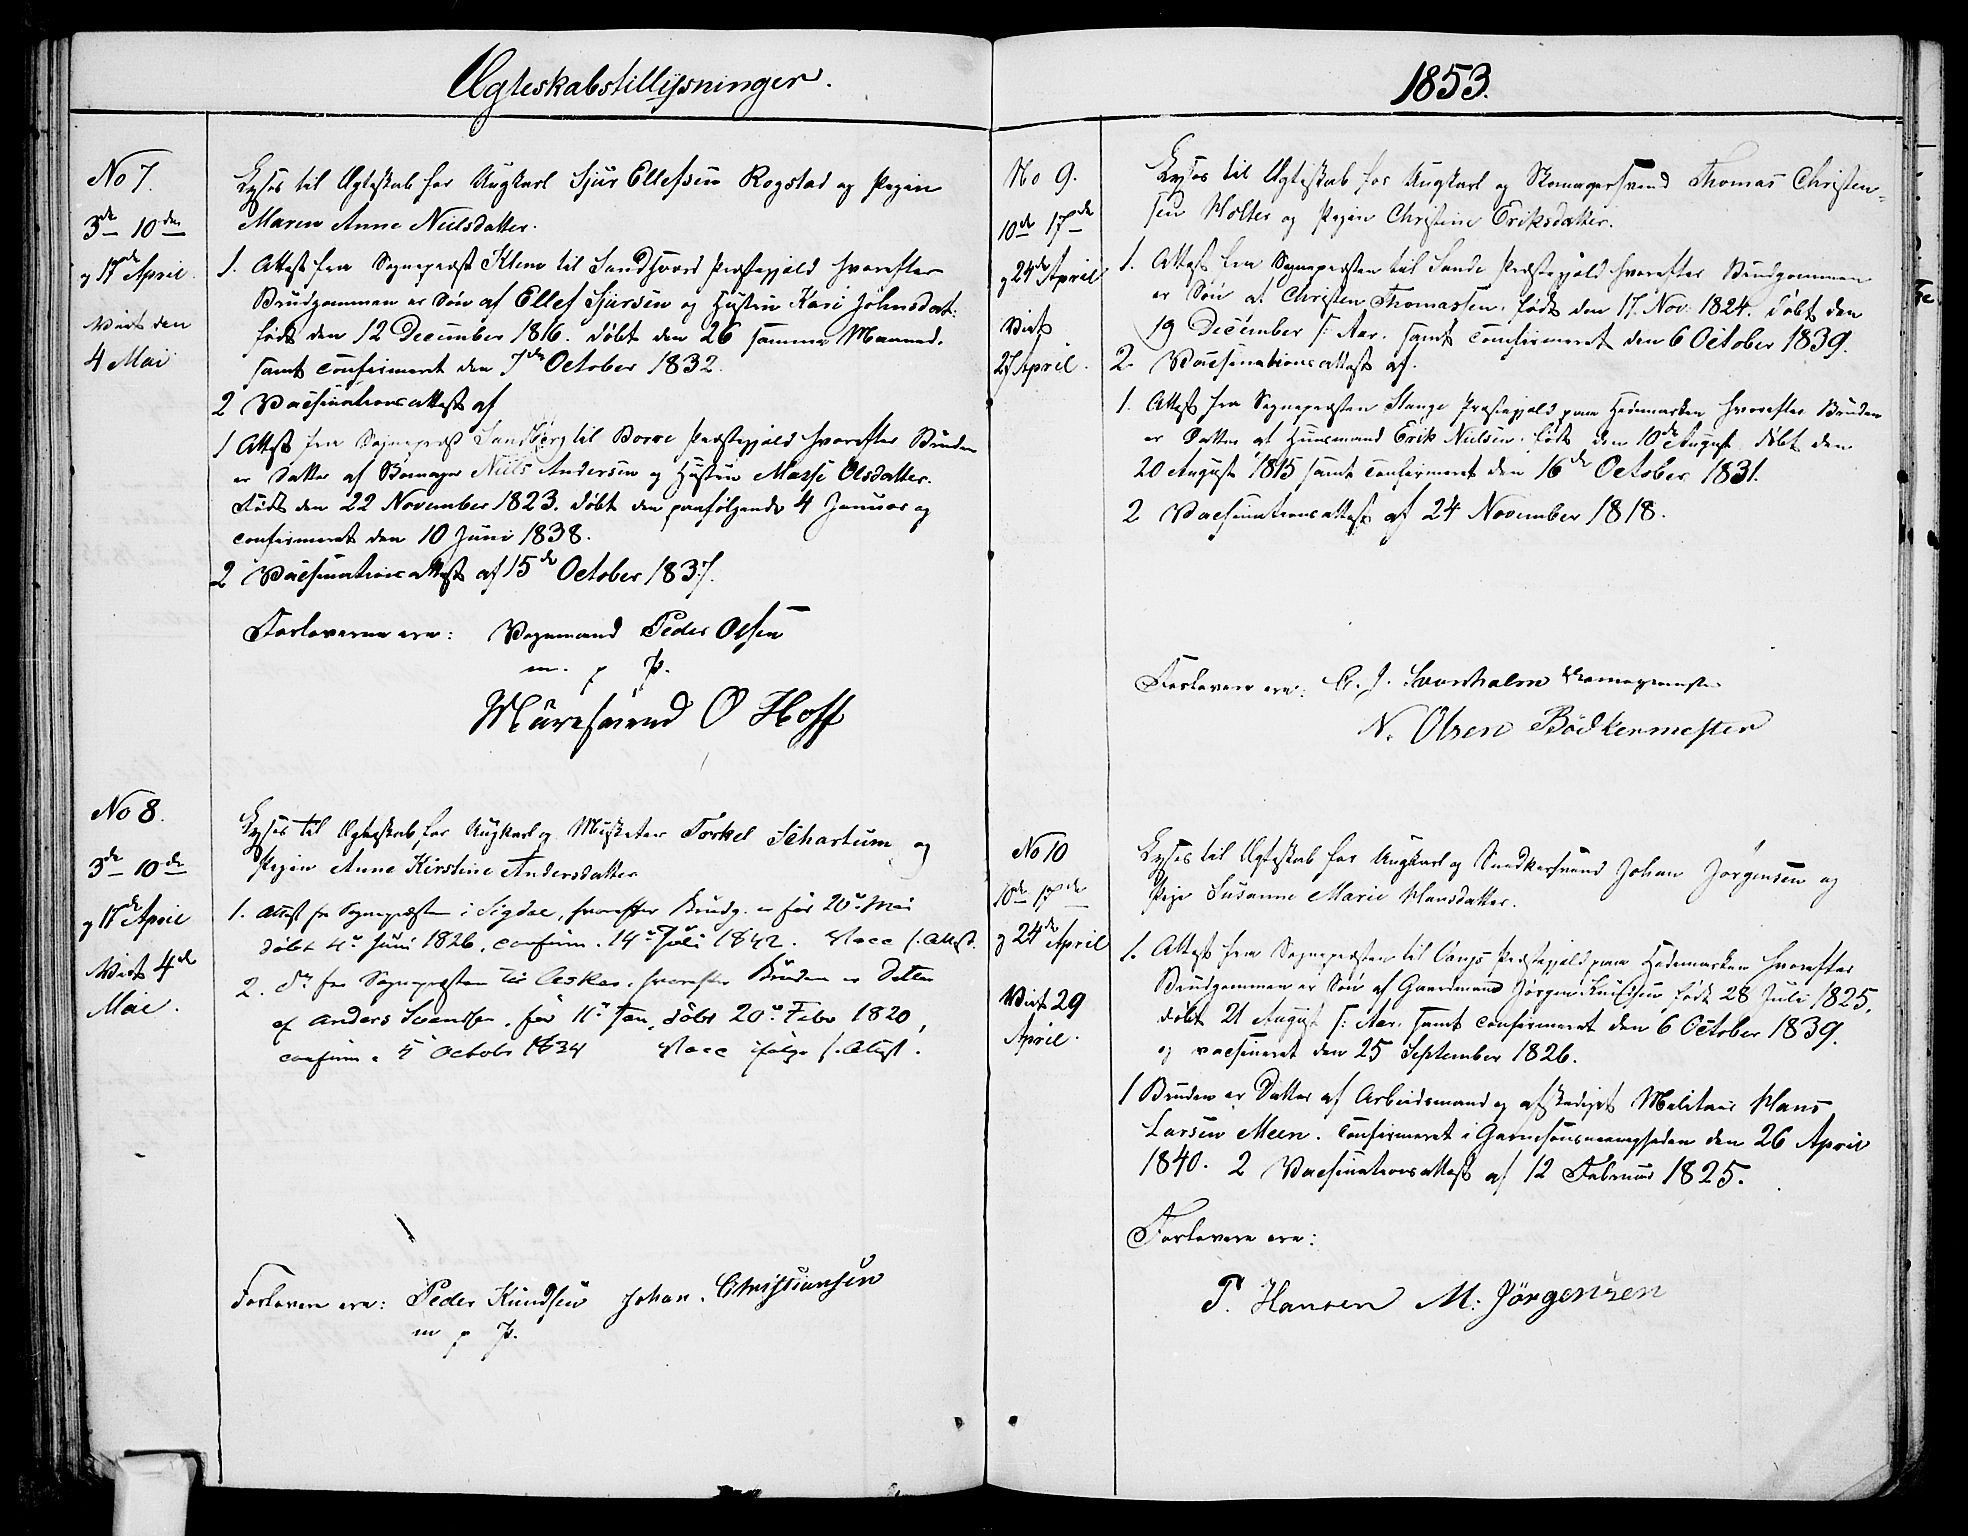 Ægteskabstillysninger.
No 7.
3de 10de
og 17de April.
Viet den
4 Mai
Lyses til Ægteskab for Ungkarl Sjur Ellefsen Rogstad og Pigen
Maren Anne Nielsdatter.
1. Attest fra Sognepræst Klem til Sandsværd Præstegjeld hvorefter
Brudgommen er Søn af Ellef Sjursen og Hustru Kari Johnsdat:
født den 12 December 1816. døbt den 26 samme Maaned.
samt confirmeret den 7de October 1832.
2 Vacsinationsattest af
1 Attest fra Sognepræst Sandberg til Borre Præstegjeld hvorefter Bruden
er Datter af Niels Andersen og Hustru Masse Olsdatter.
født den 22 November 1823. døbt den paafølgende 4 Januar og
confirmeret den 10 Juni 1838.
2 Vacsinationsattest af 15de October 1837.
Forloverne ere: Vognmand Peder Olsen
m. p. P.
Muursvend O Hoff
No 8.
3de 10de
og 17de April
Viet 4de
Mai.
Lyses til Ægteskab for Ungkarl og Musketeer Torkel Schartum og
Pigen Anne Kirstine Andersdatter
1. Attest fra Sognepræsten i Sigdal, hvorefter Brudg. er før 20de Mai
døbt 4de Juni 1826, confirm. 14de Juli 1842. Vacc f. Attest.
2. Do fra Sognepræsten til Asker, hvorefter Bruden er Datter
af Anders Svendsen, før 11de Jan, døbt 20de Febr 1820,
confirm. 5 Octobr 1834 Vacc ifølge f. Attest.
Forlovere ere: Peder Knudsen Johan Christiansen
m p P.
1853.
No 9.
10de 17de
og 24de April
Viet
27 April.
Lyses til Ægteskab for Ungkarl og Skomagersvend Thomas Christen-
sen Holter og Pigen Christine Eriksdatter.
1. Attest fra Sognepræsten til Sande Præstegjeld hvorefter Brudgommen
er Søn af Christen Thomassen, født den 17. Nov. 1824. døbt den
19 December s: Aar. samt confirmeret den 6 October 1839.
2. Vacsinationsattest af.
1. Attest fra Sognepræsten Stange Præstegjeld paa Hedemarken hvorefter Bruden
er Datter af Huusmand Erik Nielsen, født den 10de August, døbt den
20 August 1815 samt confirmeret den 16de October 1831.
2 Vacsinationsattest af 24 November 1818.
Forlovere ere: C. J. Svanholm Skomagermester
N. Olsen Bødkermester
No 10
10de 17de
og 24de April
Viet 29
April.
Lyses til Ægteskab for Ungkarl og Snedkersvend Johan Jørgensen og
Pige Susanne Marie Hansdatter.
1. Attest fra Sognepræsten til Vangs Præstegjeld paa Hedemarken hvorefter
Brudgommen er Søn af Gaardmand Jørgen Knudsen, født 28 Juli 1825,
døbt 21 August s: Aar. samt confirmeret den 6 October 1839.
og vacsineret den 25 September 1826.
1 Bruden er Datter af Arbeidsmand og afskediget Militair Hans
Larsen Meen. confirmeret i Garnisonsmenigheden den 26 April
1840. 2 Vacsinationsattest af 12 Februar 1825.
Forlovere ere:
P. Hansen M: Jörgensen